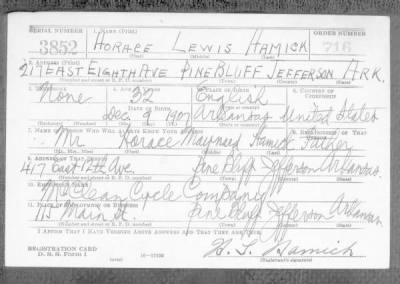 SERIAL NUMBER 1. NAME (Print) ORDER NUMBER
3852 HORACE LEWIS HAMICK 716
(First) (Middle) (Last)
2. ADDRESS (Print)
217 EAST EIGHTH AVE PINE BLUFF JEFFERSON ARK.
3. TELEPHONE 4. AGE IN YEARS 5. PLACE OF BIRTH 6. COUNTRY OF CITIZENSHIP
None 32 English
DATE OF BIRTH
Dec. 9 1907 Arkansas United States
7. NAME OF PERSON WHO WILL ALWAYS KNOW YOUR ADDRESS 8. RELATIONSHIP OF THAT PERSON
Mr. Horace Hamick Father
(Mr., Mrs., Miss) (First) (Middle) (Last)
9. ADDRESS OF THAT PERSON
417 East 12th Ave. Pine Bluff Jefferson Arkansas
10. EMPLOYER'S NAME
Cycle Company
11. PLACE OF EMPLOYMENT OR BUSINESS
115 Main St. Pine Bluff Jefferson Arkansas
I AFFIRM THAT I HAVE VERIFIED ABOVE ANSWERS AND THAT THEY ARE TRUE.
REGISTRATION CARD H. L. Hamick
D. S. S. Form 1 (over) 16-17105 (Registrant's signature)